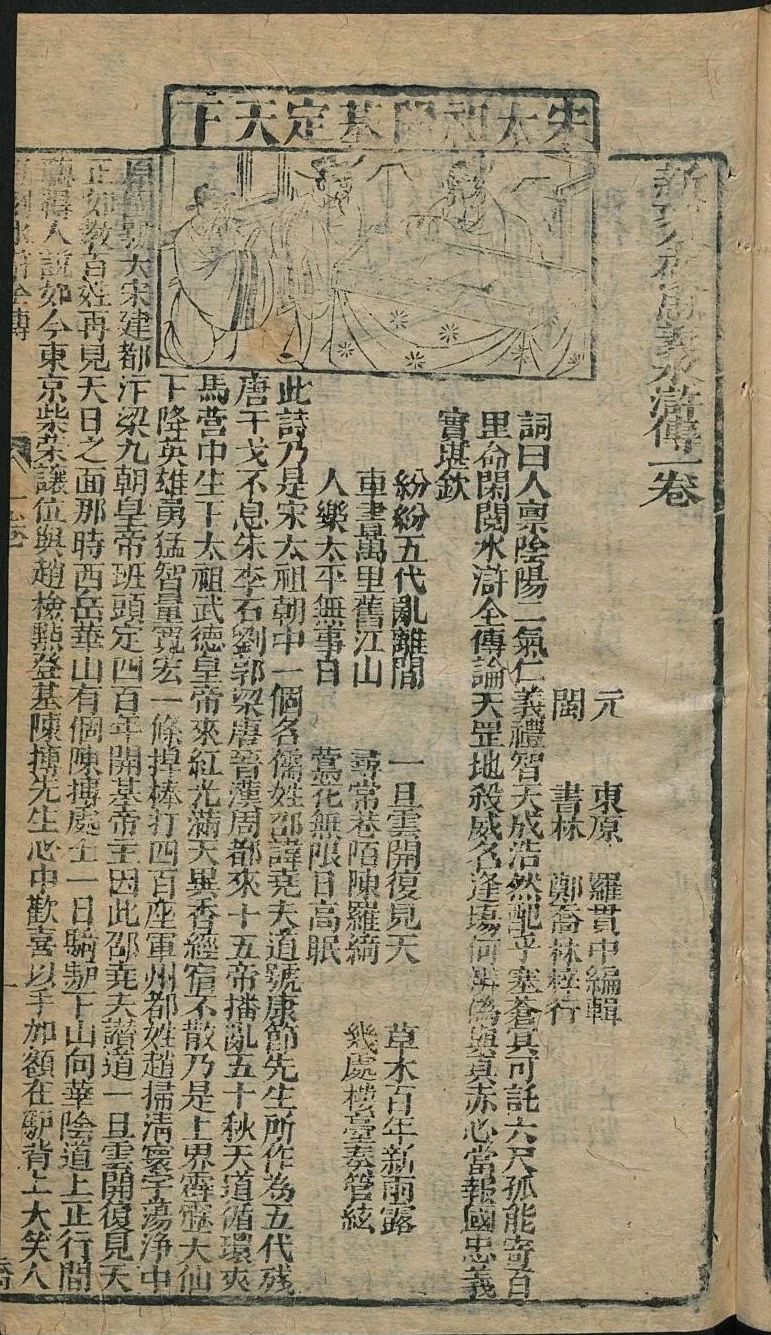 新刻全本忠義水滸傳一卷
元 東原 羅貫中編輯
閩 書林 鄭喬林梓行
詞曰人禀陰陽二氣仁義禮智天成浩然配乎塞蒼冥可託六尺孤能寄百
里命閑閱水滸全傳論天罡地殺威名逢塲何辨偽與真赤心當報國忠義
實堪欽
紛紛五代亂離間 一旦雲開復見天 草木百年新雨露
車書萬里舊江山 尋常巷陌陳羅綺 幾處樓臺奏管絃
人樂太平無事日 鶯花無限日高眠
宋太祖開基定天下
此詩乃是宋太祖朝中一個名儒姓邵諱堯夫道號康節先生所作為五代残
唐干戈不息朱李石劉郭梁唐晉漢周都來十五帝播亂五十秋天道循環夾
馬营中生下太祖武德皇帝來紅光滿天異香經宿不散乃是上界霹靂大仙
下降英雄勇猛智量寬宏一條捍棒打四百座軍州都姓趙掃清寰宇蕩净中
原國號大宋建都汴梁九朝皇帝班頭定四百年開基帝主因此邵堯夫讚道一旦雲開復見天
正如教百姓再見天日之面那時西岳華山有個陳摶處士一日騎馿下山向華陰道上正行間
聽得人說如今東京柴荣讓位與趙檢點登基陳摶先生心中歡喜以手加額在馿背上大笑人
水滸全傳 一卷 一